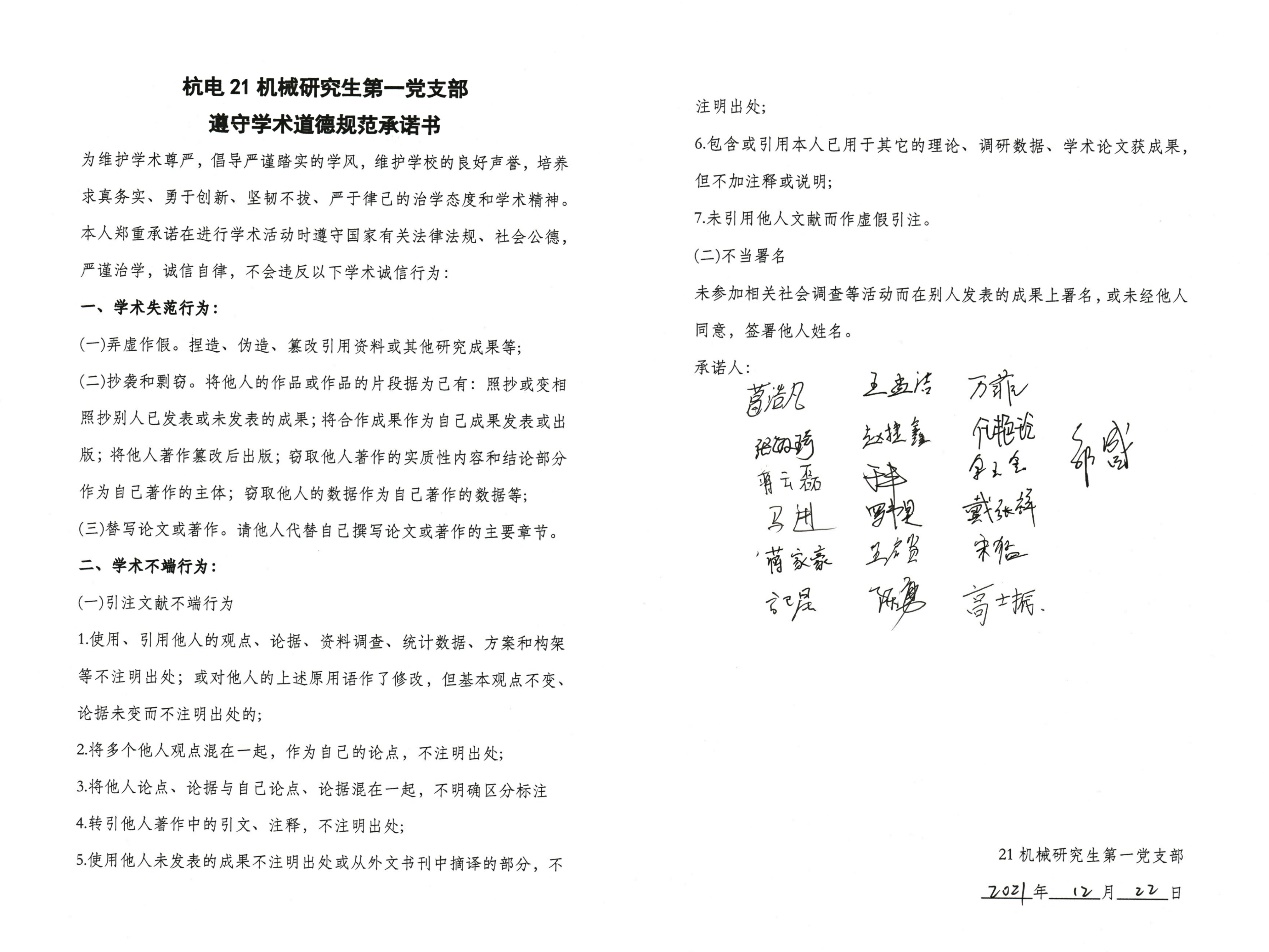 杭电 21 机械研究生第一党支部
遵守学术道德规范承诺书
为维护学术尊严，倡导严谨踏实的学风，维护学校的良好声誉，培养
求真务实、勇于创新、坚韧不拔、严于律己的治学态度和学术精神。
本人郑重承诺在进行学术活动时遵守国家有关法律法规、社会公德，
严谨治学，诚信自律，不会违反以下学术诚信行为：
一、学术失范行为：
(一)弄虚作假。捏造、伪造、篡改引用资料或其他研究成果等；
(二)抄袭和剽窃。将他人的作品或作品的片段据为己有：照抄或变相
照抄别人已发表或未发表的成果；将合作成果作为自己成果发表或出
版；将他人著作篡改后出版；窃取他人著作的实质性内容和结论部分
作为自己著作的主体；窃取他人的数据作为自己著作的数据等；
(三)替写论文或著作。请他人代替自己撰写论文或著作的主要章节。
二、学术不端行为：
(一)引注文献不端行为
1.使用、引用他人的观点、论据、资料调查、统计数据、方案和构架
等不注明出处；或对他人的上述原用语作了修改，但基本观点不变、
论据未变而不注明出处的；
2.将多个他人观点混在一起，作为自己的论点，不注明出处；
3.将他人论点、论据与自己论点、论据混在一起，不明确区分标注
4.转引他人著作中的引文、注释，不注明出处；
5.使用他人未发表的成果不注明出处或从外文书刊中摘译的部分，不
注明出处；
6.包含或引用本人已用于其它的理论、调研数据、学术论文获成果，
但不加注释或说明；
7.未引用他人文献而作虚假引注。
(二)不当署名
未参加相关社会调查等活动而在别人发表的成果上署名，或未经他人
同意，签署他人姓名。
承诺人：
葛浩凡 王尚洁 万菲
赵捷鑫
蒋云磊
马进 戴张祥
蒋家豪
记星 陈勇 高士振.
21 机械研究生第一党支部
2021年 12 月 22 日